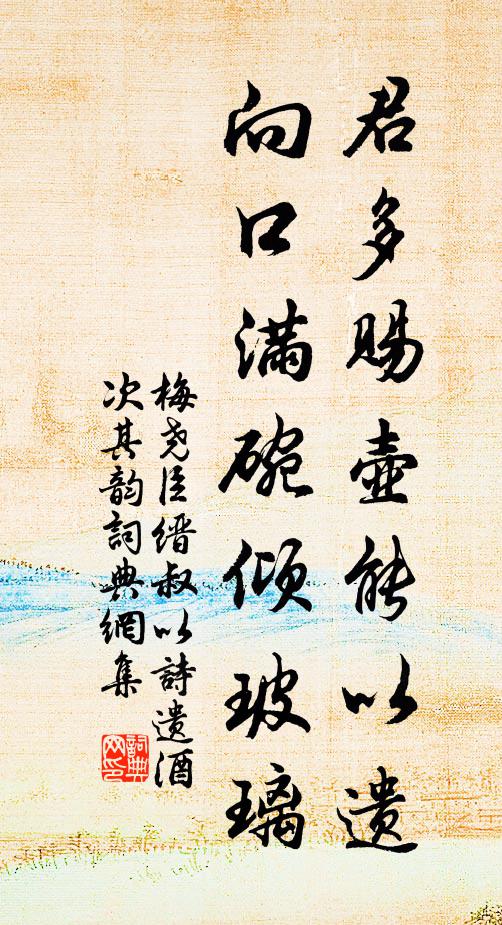 君多賜壺能以遗
向口滿碗傾玻璃
梅堯臣缙叔以詩遗酒
次其韵詞典網集
詞典网印